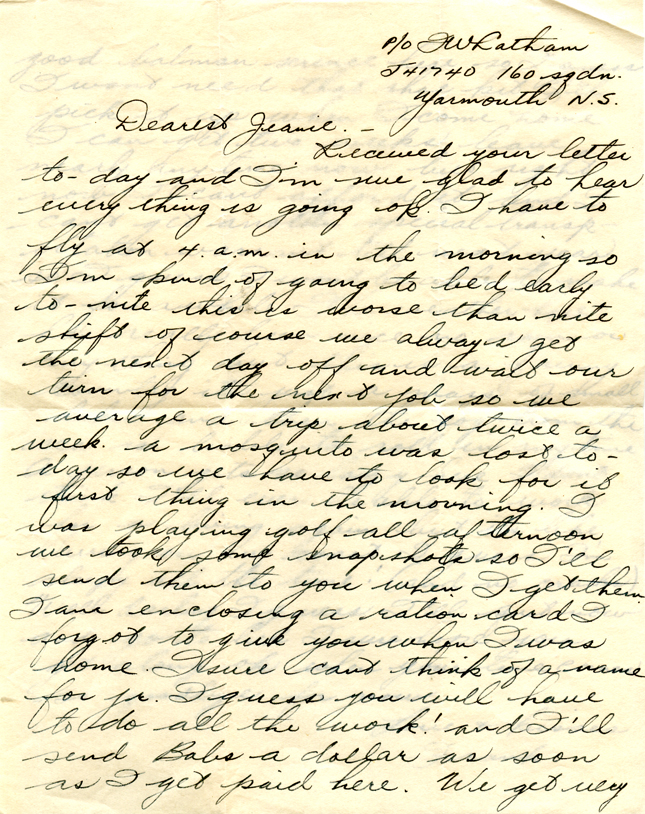 P/O J W Latham
J41740 160 sqdn.
Yarmouth N.S.
Dearest Jeanie. —
Received your letter
to-day and I'm sure glad to hear
every thing is going ok. I have to
fly at 4. a.m. in the morning so
I'm kind of going to bed early
to-nite this is worse than nite
shift of course we always get
the next day off and wait our
turn for the next job so we
average a trip about twice a
week. a mosquito was lost to-
day so we have to look for it
first thing in the morning. I
was playing golf all afternoon
we took some snapshots so I'll
send them to you when I get them
I am enclosing a ration card I
forgot to give you when I was
home. I sure cant think of a name
for jr. I guess you will have
to do all the work! and I'll
send Babs a dollar as soon
as I get paid here. We get very